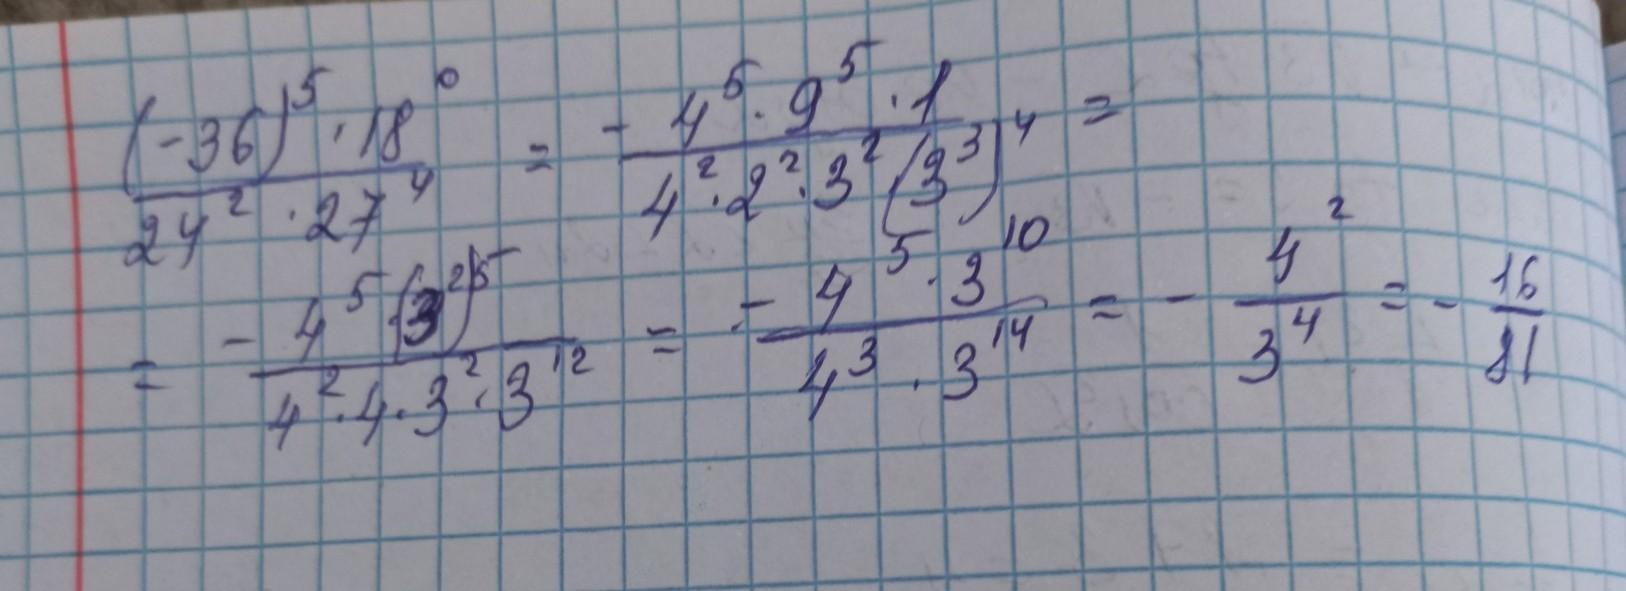 (-36)^5 · 18^0 / 24^2 · 27^4 = - 4^5 · 9^5 · 1 / 4^2 · 2^2 · 3^2 (3^3)^4 =
= - 4^5 · (3^2)^5 / 4^2 · 4 · 3^2 · 3^12 = - 4^5 · 3^10 / 4^3 · 3^14 = - 4^2 / 3^4 = - 16 / 81